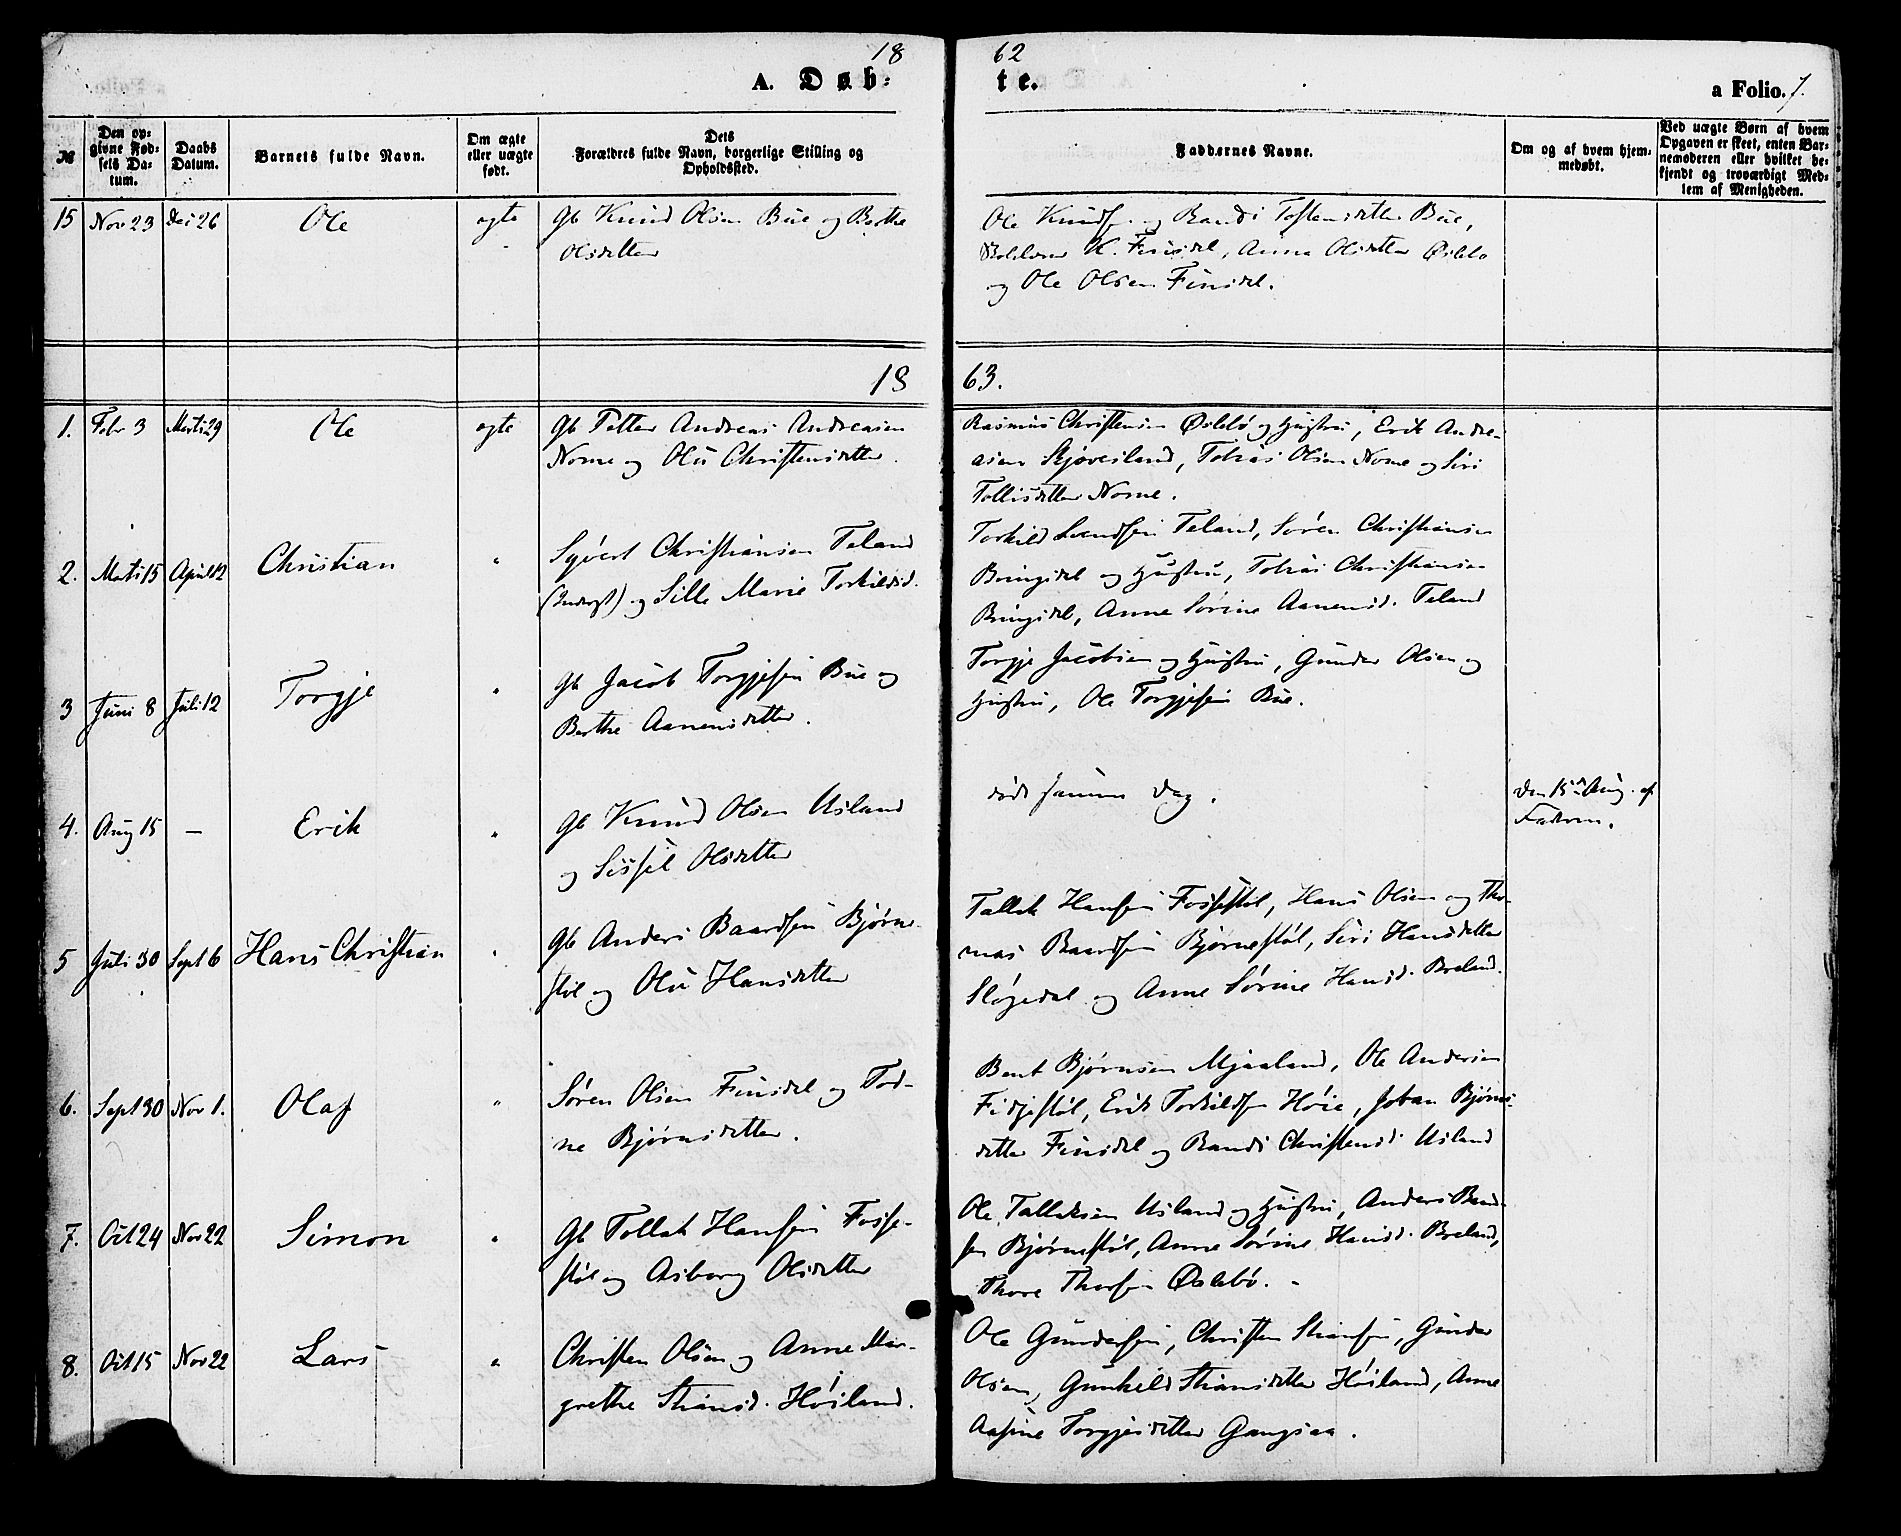 18 62
A. Døb: te. a Folio. 7.
№ Den opgivne Fødsels Datum. Daabs Datum. Barnets fulde Navn. Om ægte eller uægte født. Dets Forældres fulde Navn, borgerlige Stilling og Opholdssted. Faddernes Navne. Om og af hvem hjemmedøbt. Ved uægte Børn af hvem Opgaven er skeet, enten Barnemoderen eller hvilket bekjendt og troværdigt Medlem af Menigheden.
15 Nov 23 Dec 26 Ole ægte Gb Knud Olsen Bue og Berthe
Olsdatter
Ole Knudsen og Randi Tostensdatter Bue,
K. Finsdal, Anna Olsdatter Øslebø
og Ole Olsen Finsdal.
18 63.
1. Febr 3 Marts 29 Ole ægte Gb Petter Andreas Andreasen
Nome og Olu Christensdatter.
Rasmus Christensen Øslebø og Hustru, Erik Andre-
asen Skjøvesland, Tobias Olsen Nome og Siri
Tollisdatter Nome.
2. Marts 15 April 12 Christian " Syvert Christiansen Teland
(Inderst) og Sille Marie Torkildsd.
Torkild Svendsen Teland, Søren Christiansen
Bringsdal og Hustru, Tobias Christiansen
Bringsdal, Anne Sørine Aanensd. Teland
3 Juni 8 Juli 12 Torgje " Gb Jacob Torgjesen Bue og
Berthe Aanensdatter.
Torgje Jacobsen og Hustru, Gunder Olsen og
Hustru, Ole Torgjesen Bue.
4. Aug 15 — Erik " Gb Knud Olsen Usland
og Sissel Olsdatter
død samme Dag.
Den 15de Aug. af
Faderen.
5 Juli 30 Sept 6 Hans Christian " Gb Anders Baardsen Bjørne-
støl og Olu Hansdatter
Tallak Hansen Fossestøl, Hans Olsen og Tho-
mas Baardsen Bjørnestøl, Siri Hansdatter
Sløgedal og Anne Sørine Hansd. Breland.
6. Sept 30 Nov 1. Olaf " Søren Olsen Finsdal og Tod-
ne Bjørnsdatter.
Bent Bjørnsen Mjaaland, Ole Andersen
Fidjestøl, Erik Torkildsen Høie, Johan Bjørns-
datter Finsdal og Randi Christensd. Usland
7. Oct 24 Nov 22 Simon " Gb Tollak Hansen Fosse-
støl og Asborg Olsdatter
Ole Tallaksen Usland og Hustru, Anders Baard-
sen Bjørnestøl, Anne Sørine Hansd. Breland,
Thore Thorsen Øslebø. -
8. Oct 15 Nov 22 Lars " Christen Olsen og Anne Mar-
grethe Stiansd. Høiland.
Ole Gundersen, Christen Stiansen, Gunder
Olsen, Gunhild Stiansdatter Høiland, Anne
Aasine Torgjesdatter Gangsaa.